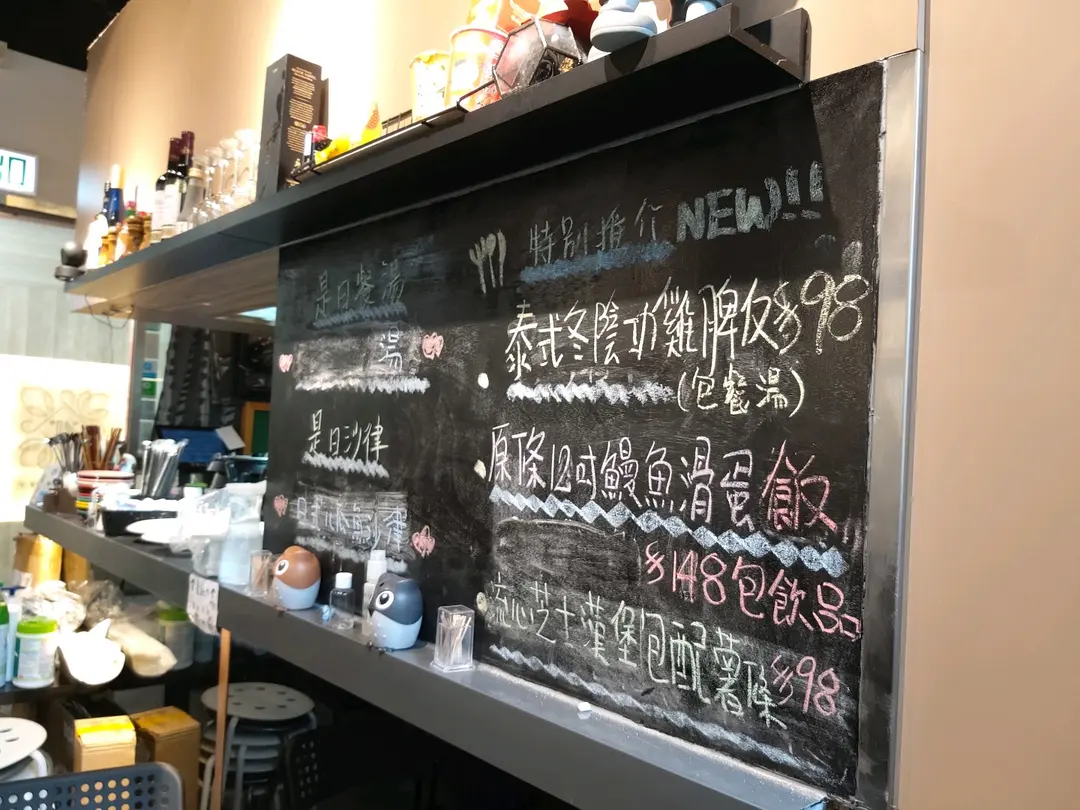 是日餐湯
湯
是日沙律
特別推介 NEW!!
泰式冬陰功雞脾飯 $98
(包餐湯)
原條12吋鰻魚滑蛋飯
$148包飲品
流心芝士漢堡包配薯條 $98